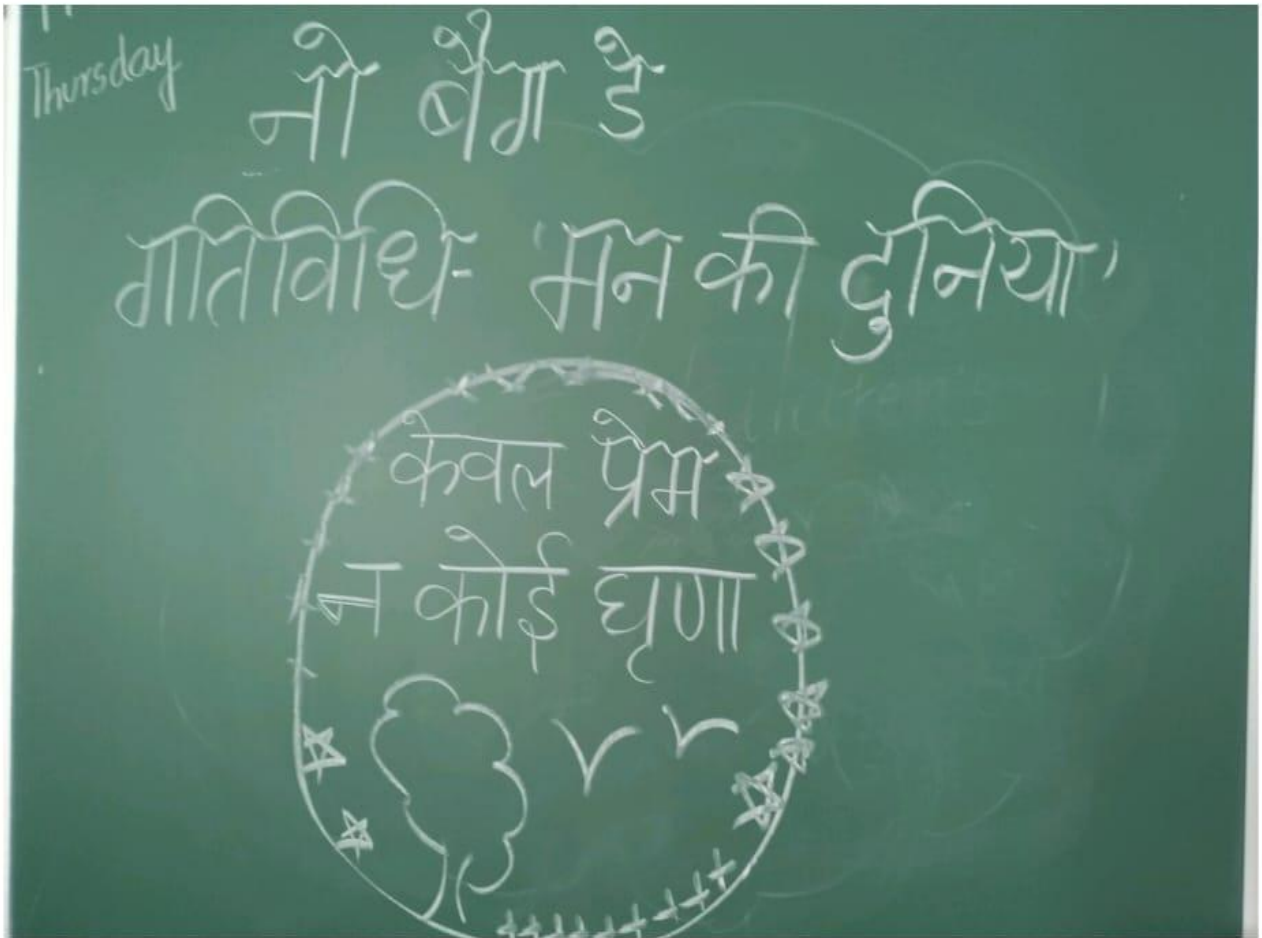 Thursday
नो बैग डे
गतिविधि- 'मन की दुनिया'
केवल प्रेम
न कोई घृणा